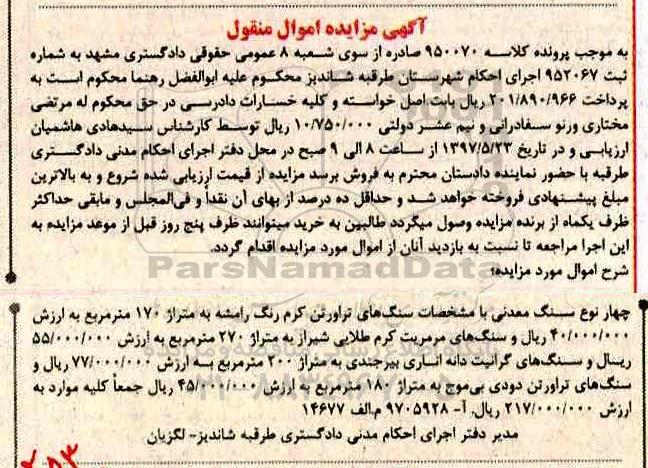 آگهی مزایده اموال منقول
به موجب پرونده کلاسه ۹۵۰۰۷۰ صادره از سوی شعبه ۸ عمومی حقوقی دادگستری مشهد به شماره
ثبت ۹۵۲۰۶۷ اجرای احکام شهرستان طرقبه شاندیز محکوم علیه ابوالفضل رهنما محکوم است به
پرداخت ۲۰۱/۸۹۰/۹۶۶ ریال بابت اصل خواسته و کلیه خسارات دادرسی در حق محکوم له مرتضی
مختاری ورنو سفادرانی و نیم عشر دولتی ۱۰/۷۵۰/۰۰۰ ریال توسط کارشناس سیدهادی هاشمیان
ارزیابی و در تاریخ ۱۳۹۷/۵/۲۳ از ساعت ۸ الی ۹ صبح در محل دفتر اجرای احکام مدنی دادگستری
طرقبه با حضور نماینده دادستان محترم به فروش برسد مزایده از قیمت ارزیابی شده شروع و به بالاترین
مبلغ پیشنهادی فروخته خواهد شد و حداقل ده درصد از بهای آن نقداً و فی‌المجلس و مابقی حداکثر
ظرف یکماه از برنده مزایده وصول میگردد طالبین به خرید میتوانند ظرف پنج روز قبل از موعد مزایده به
این اجرا مراجعه تا نسبت به بازدید آنان از اموال مورد مزایده اقدام گردد.
ParsNamadData
شرح اموال مورد مزایده؛
چهار نوع سنگ معدنی با مشخصات سنگ‌های تراورتن کرم رنگ رامشه به متراژ ۱۷۰ مترمربع به ارزش
۴۰/۰۰۰/۰۰۰ ریال و سنگ‌های مرمریت کرم طلایی شیراز به متراژ ۲۷۰ مترمربع به ارزش ۵۵/۰۰۰/۰۰۰
ریال و سنگ‌های گرانیت دانه اناری بیرجندی به متراژ ۲۰۰ مترمربع به ارزش ۷۷/۰۰۰/۰۰۰ ریال و
سنگ‌های تراورتن دودی بی‌موج به متراژ ۱۸۰ مترمربع به ارزش ۴۵/۰۰۰/۰۰۰ ریال جمعاً کلیه موارد به
ارزش ۲۱۷/۰۰۰/۰۰۰ ریال. آ- ۹۷۰۵۹۲۸ م.الف ۱۴۶۷۷
مدیر دفتر اجرای احکام مدنی دادگستری طرقبه شاندیز- لگزیان